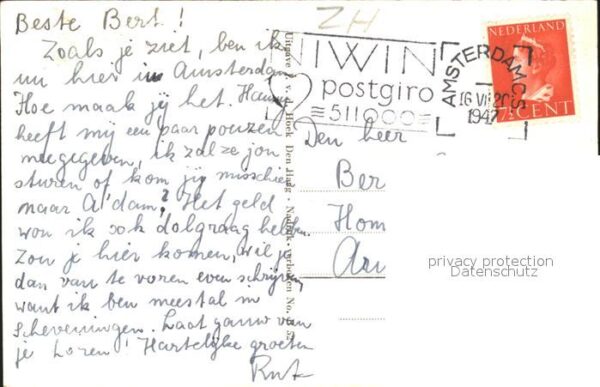 Beste Bert!
Zoals je ziet, ben ik
nu hier in Amsterdam
Hoe maak jij het. Hans
heeft mij een paar
meegegeven, ik zal ze jou
sturen of kom jij misschien
naar A'dam? Het geld
wou ik ook dolgraag hebben.
Zou je hier komen, wil je
dan van te voren even schrijven,
want ik ben meestal in
Scheveningen. Laat gauw van
je horen! Hartelijke groeten
ZH
NIWIN
postgiro
511000
AMSTERDAM C.S.
16 VII 20
1947
NEDERLAND
7½ CENT
Uitgave J. v. d. Hoek Den Haag - Nadruk verboden No.
Den heer
Ber
Hom
privacy protection
Datenschutz